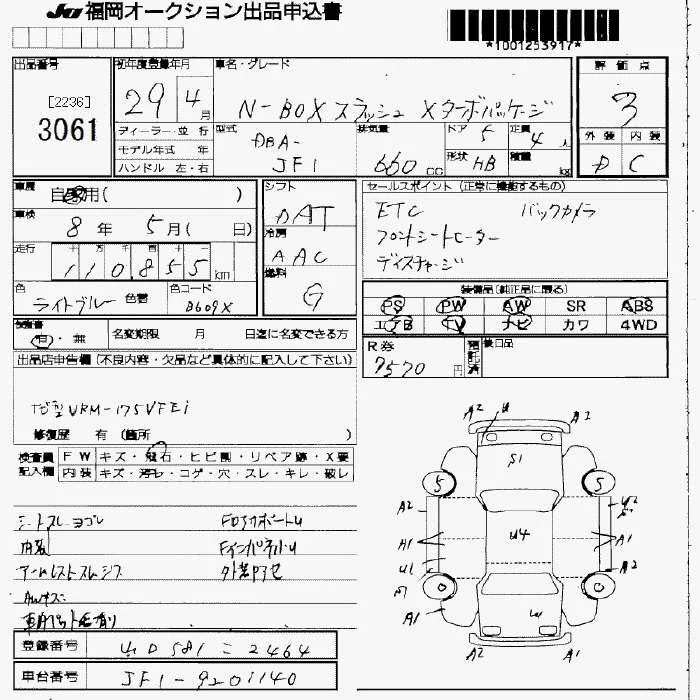 JU 福岡オークション出品申込書
*1001253917*
出品番号 [2236] 3061
初年度登録年月 29年 4月
車名・グレード N-BOXスラッシュ Xターボパッケージ
評価点 3
外装 D 内装 C
ディーラー・並行
モデル年式 年
ハンドル 左・右
型式 DBA-JF1
排気量 660cc
ドア 5
定員 4人
形状 HB
積量 kg
車歴 自家用( )
車検 8年 5月( 日)
走行 十万千百十 110,855km
色 ライトブルー 色替
色コード B609X
シフト DAT
冷房 AAC
燃料 G
セールスポイント (正常に機能するもの)
ETC バックカメラ
フロントシートヒーター
ディスチャージ
装備品(純正品に限る)
PS PW AW SR ABS
エアB TV ナビ カワ 4WD
保証書 有・無
名変期限 月 日迄に名変できる方
R券 7570円
預託済
後日品
出品店申告欄 (不良内容・欠品など具体的に記入して下さい)
ナビ型VRM-175VFEi
修復歴 有 (箇所 )
検査員記入欄
FW キズ・飛石・ヒビ割・リペア跡・X要
内装 キズ・汚レ・コゲ・穴・スレ・キレ・破レ
シートスレヨゴレ
内装
アームレストスレ
AWキズ
FロアサポートU
FインパネルU
A2 U A2
S1
5 5
A2 U2
A1 A1 U4 A1 A1
U1 A2
A1
W
A2 A1
登録番号 581 2464
車台番号 JF1-9201140